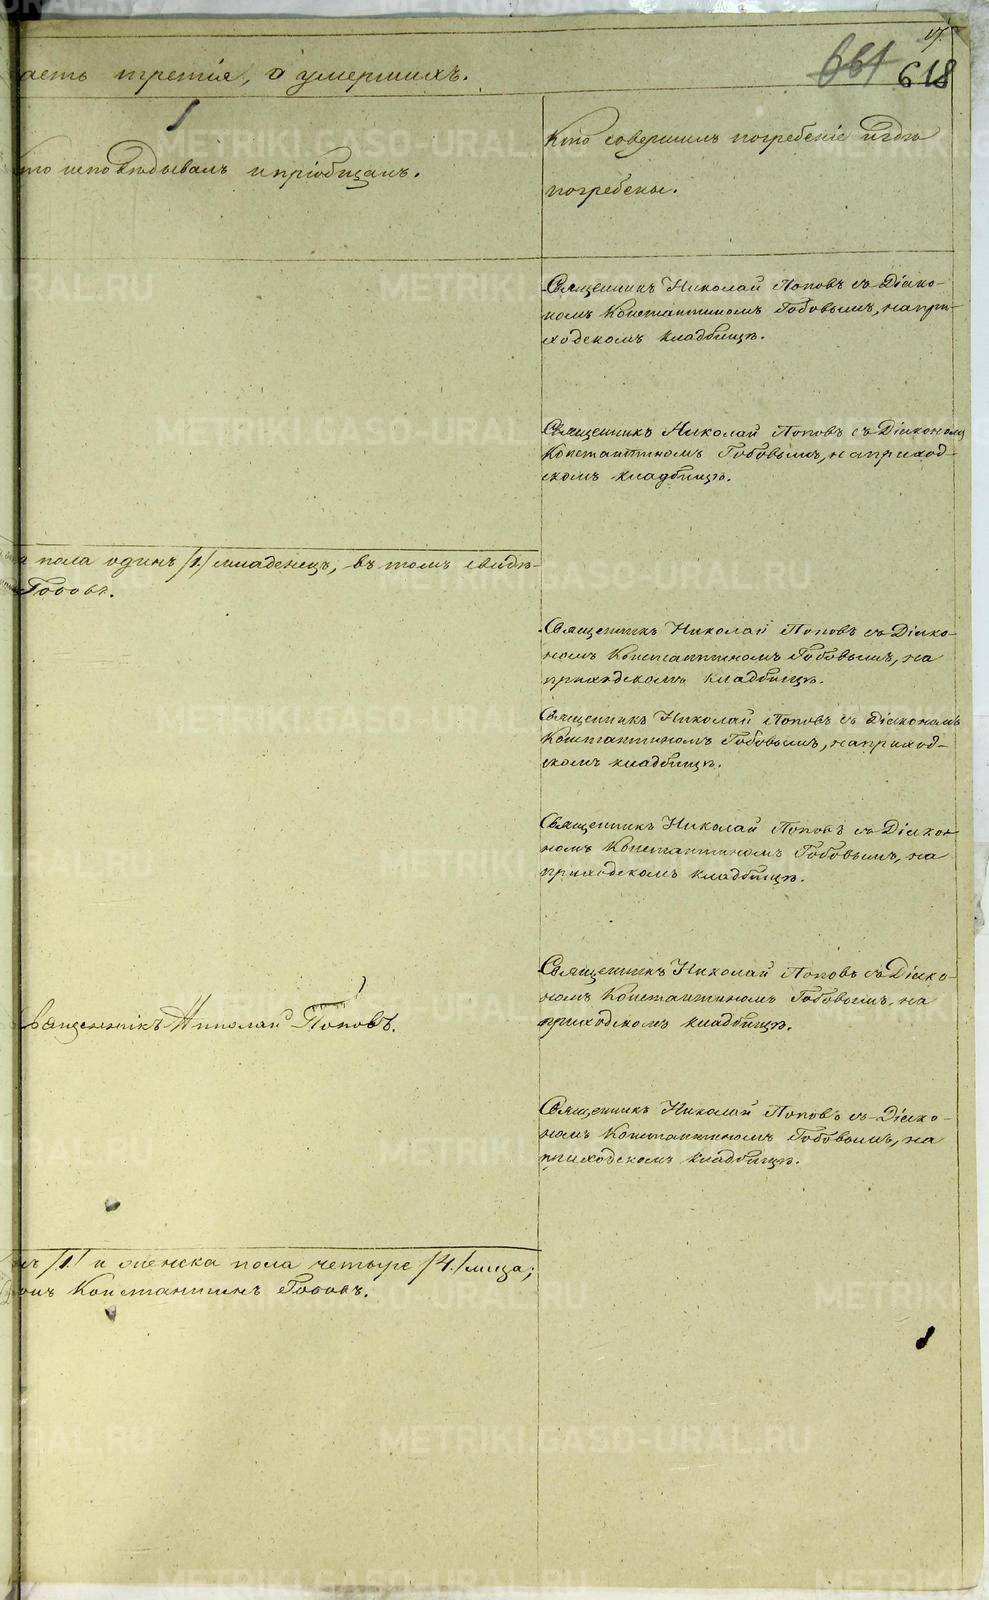 17.
661 618
асть третія, о умершихъ.
то исповѣдывалъ и пріобщалъ.
Кто совершилъ погребеніе и гдѣ
погребены.
Священникъ Николай Поповъ съ Діяко-
номъ Константиномъ Гобовымъ, на при-
ходскомъ кладбищѣ.
Священникъ Николай Поповъ съ Діякономъ
Константиномъ Гобовымъ, на приход-
скомъ кладбищѣ.
пола одинъ /1./ младенецъ, въ томъ свидѣ-
Гобовъ.
Священникъ Николай Поповъ съ Діяко-
номъ Константиномъ Гобовымъ, на
приходскомъ кладбищѣ.
Священникъ Николай Поповъ съ Діякономъ
Константиномъ Гобовымъ, на приход-
скомъ кладбищѣ.
Священникъ Николай Поповъ съ Діяко-
номъ Константиномъ Гобовымъ, на
приходскомъ кладбищѣ.
Священникъ Николай Поповъ съ Діяко-
номъ Константиномъ Гобовымъ, на
приходскомъ кладбищѣ.
вященникъ Николай Поповъ.
Священникъ Николай Поповъ съ Діяко-
номъ Константиномъ Гобовымъ, на
приходскомъ кладбищѣ.
/1./ и женска пола четыре /4./ лица;
онъ Константинъ Гобовъ.
METRIKI.GASO-URAL.RU